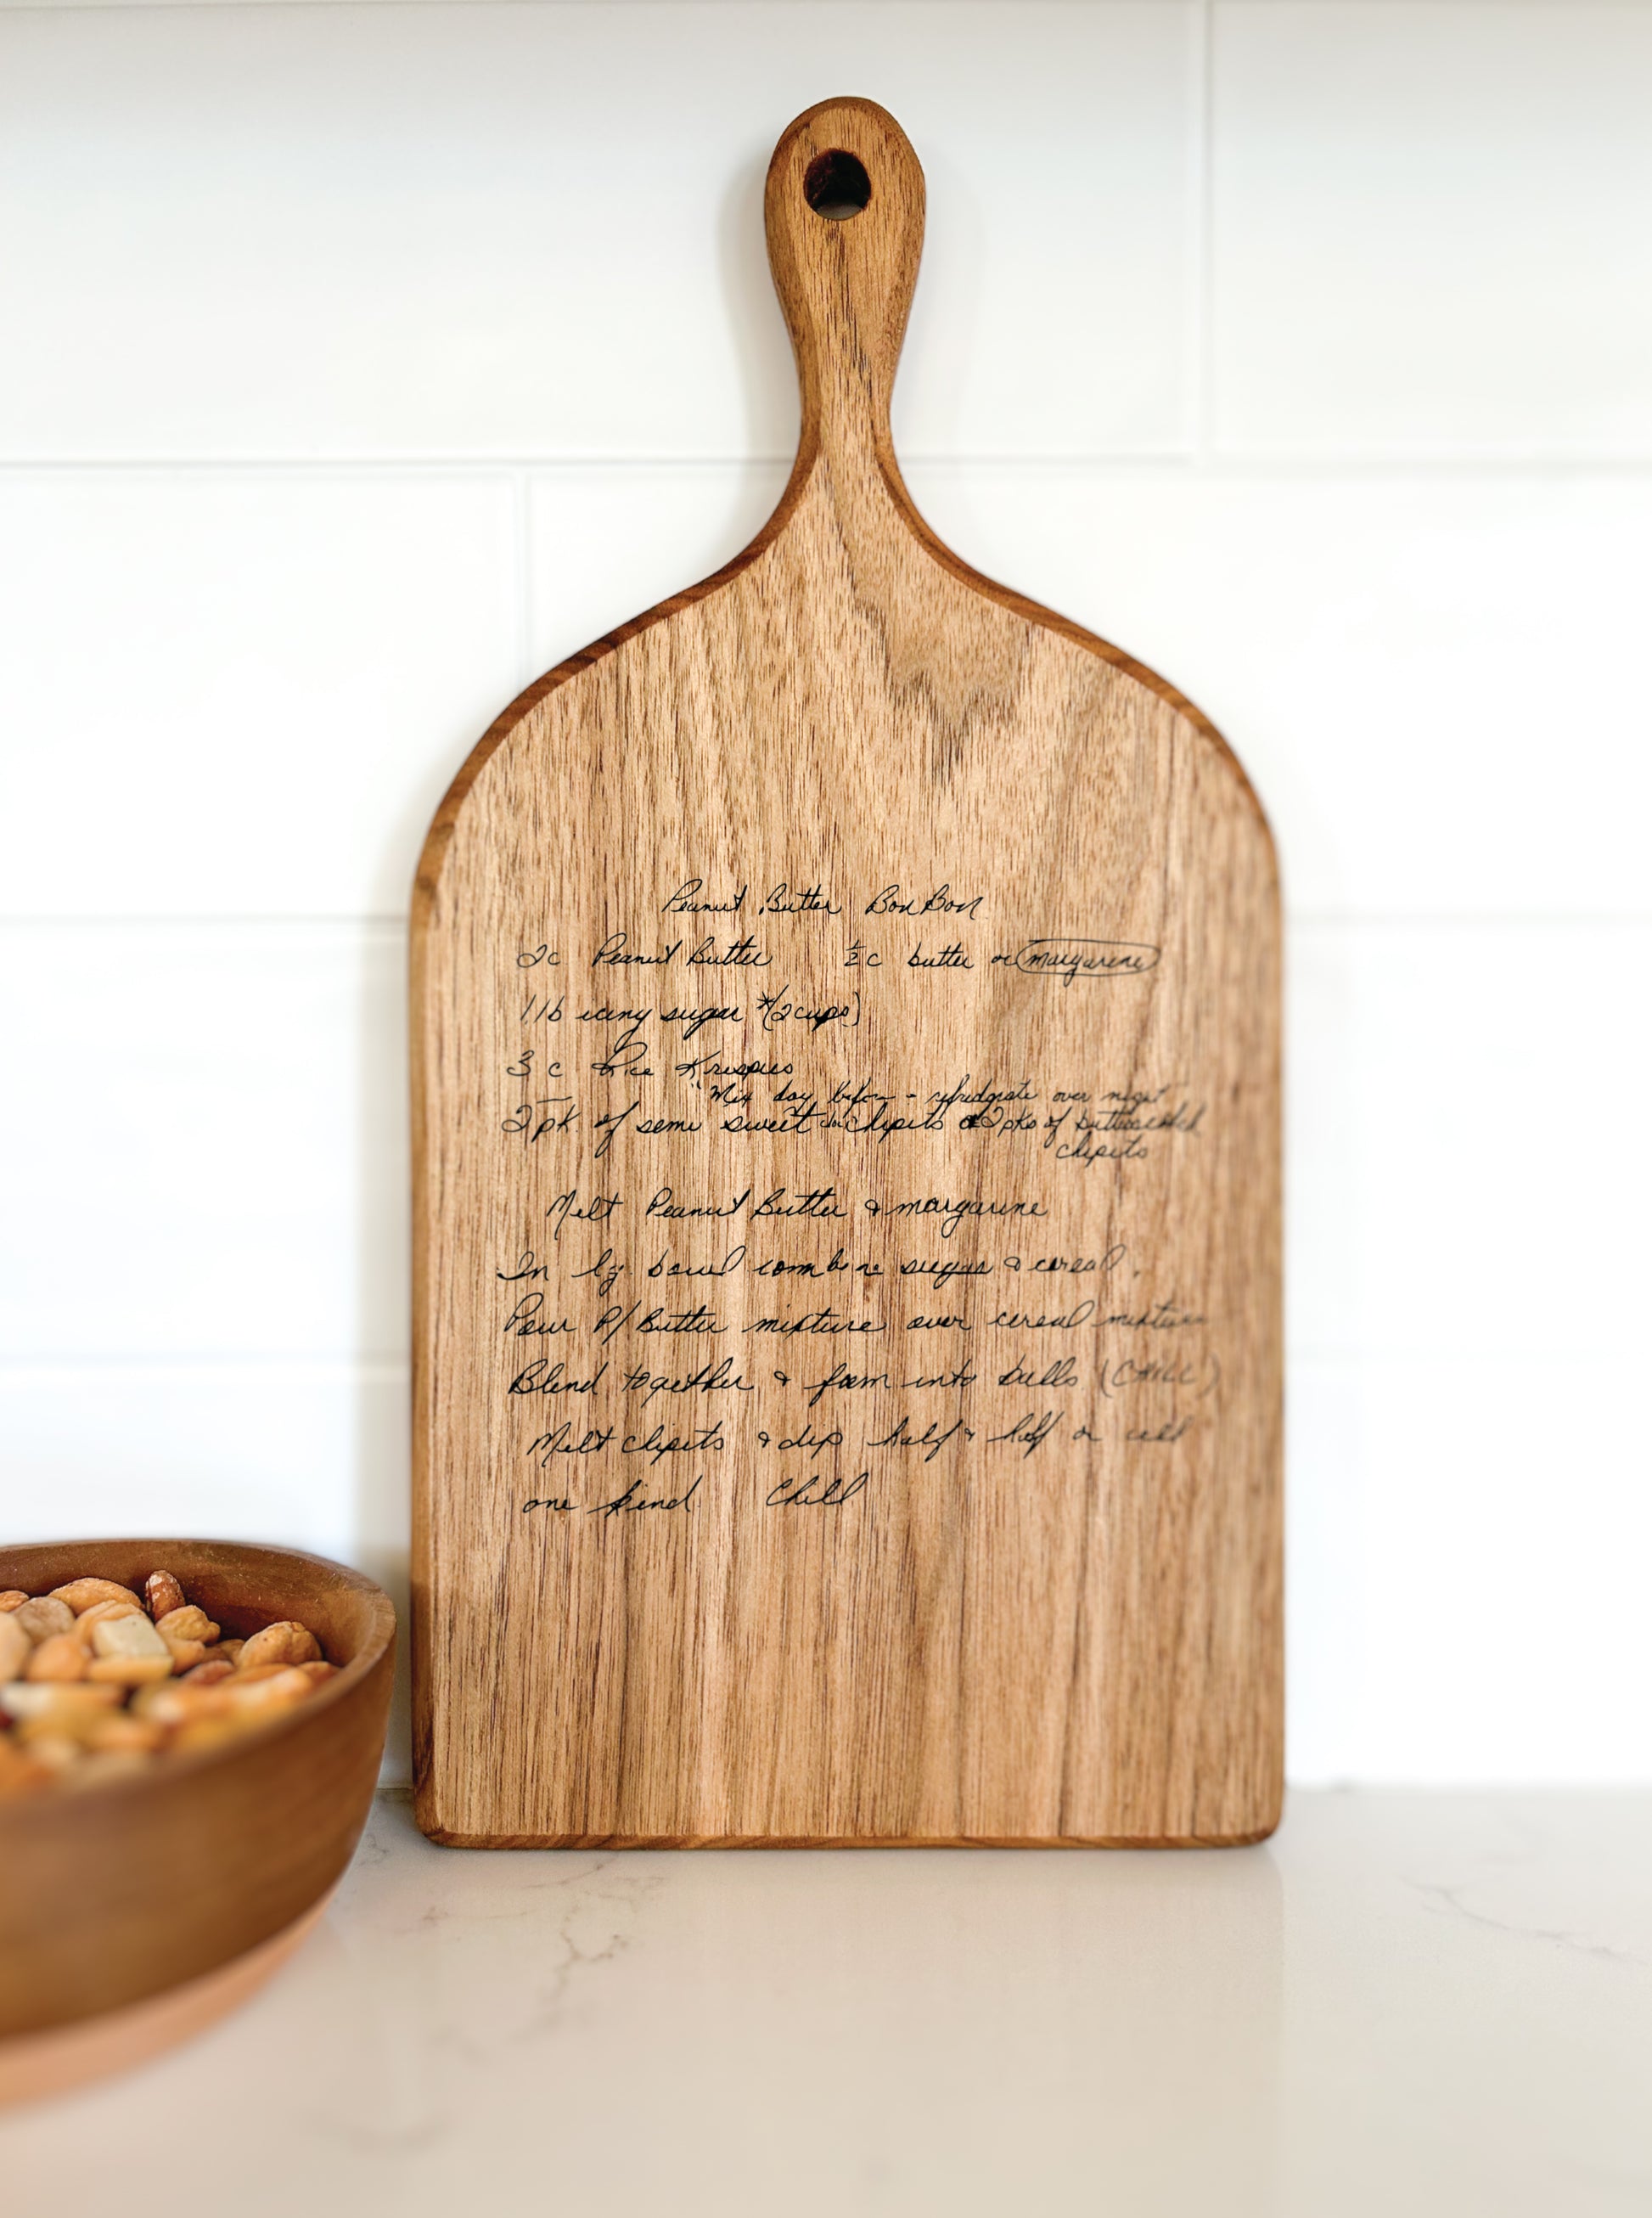 Peanut Butter Bon Bon
2c Peanut Butter ½c butter or margarine
1 lb icing sugar *(2 cups)
3 c Rice Krispies
"Mix day before - refridgrate over night
2 pk. of semi sweet choc chipits or 2 pks of butterscotch
chipits
Melt Peanut Butter & margarine
In lg bowl combine sugar & cereal.
Pour P/Butter mixture over cereal mixture
Blend together & form into balls (CHILL)
Melt chipits & dip half & half or all
one kind. Chill